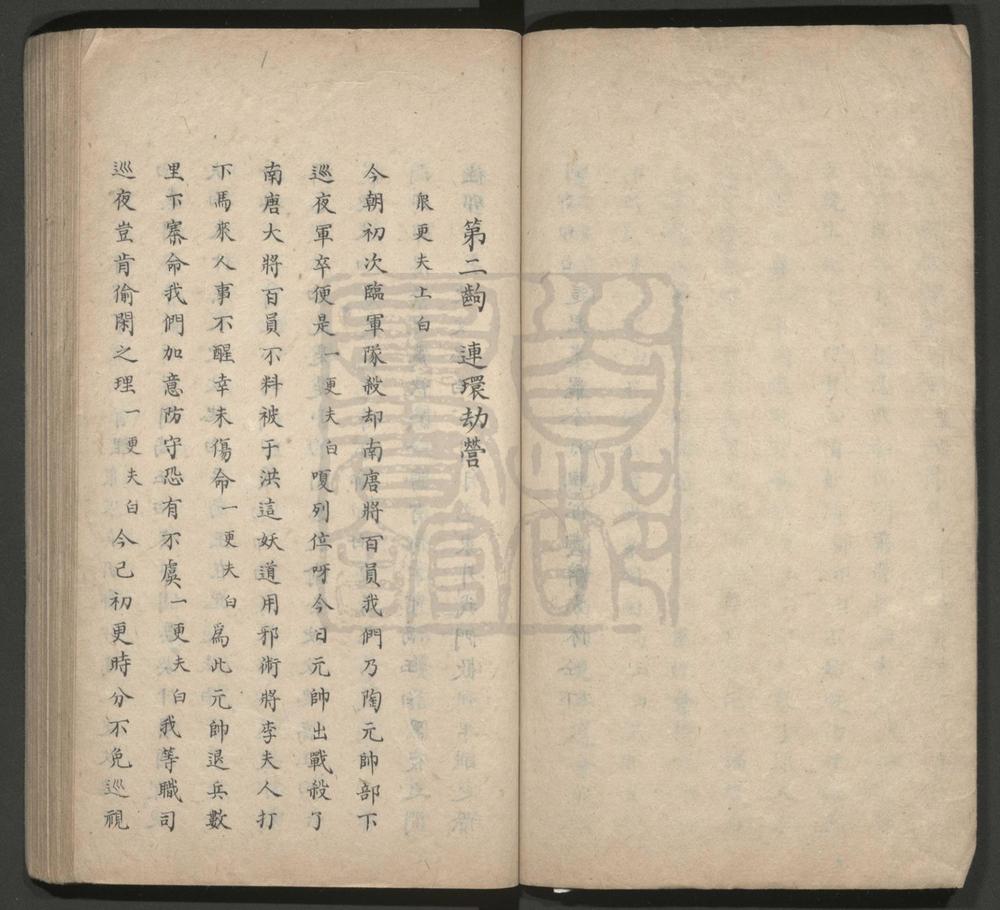 第二齣 連環劫營
衆更夫上白
今朝初次臨軍隊殺却南唐將百員我們乃陶元帥部下
巡夜軍卒便是一更夫白嗄列位呀今日元帥出戰殺了
南唐大將百員不料被于洪這妖道用邪術將李夫人打
下馬來人事不醒幸未傷命一更夫白爲此元帥退兵數
里下寨命我們加意防守恐有不虞一更夫白我等職司
巡夜豈肯偷閑之理一更夫白今已初更時分不免巡視